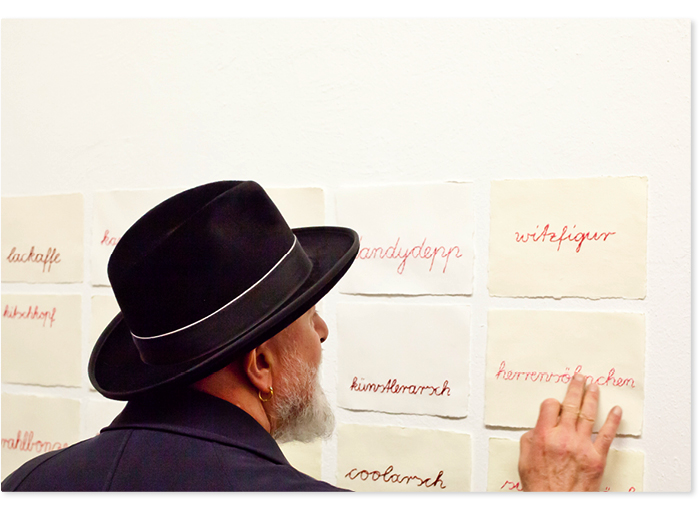 lackaffe
andydepp
witzfigur
kitschkopf
künstlerarsch
herrensöhnchen
coolarsch